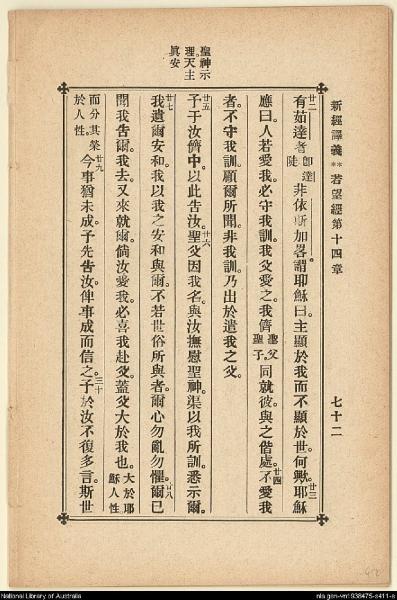 新經譯義**若望經第十四章
七十二
聖神示
理天主
眞安
廿二有茹達者卽達陡非依斯加畧謂耶穌曰主顯於我而不顯於世何歟廿三耶穌
應曰人若愛我必守我訓我父愛之我儕聖父聖子同就彼與之偕處廿四不愛我
者不守我訓顧爾所聞非我訓乃出於遣我之父
廿五予于汝儕中以此告汝廿六聖父因我名與汝撫慰聖神渠以我所訓悉示爾
廿七我遺爾安和我以我之安和與爾不若世俗所與者爾心勿亂勿懼廿八爾已
聞我吿爾我去又來就爾倘汝愛我必喜我赴父蓋父大於我也大於耶穌人性
而分其榮於人性廿九今事猶未成予先吿汝俾事成而信之三十予於汝不復多言斯世
National Library of Australia
nla.gen-vn1938475-s411-e